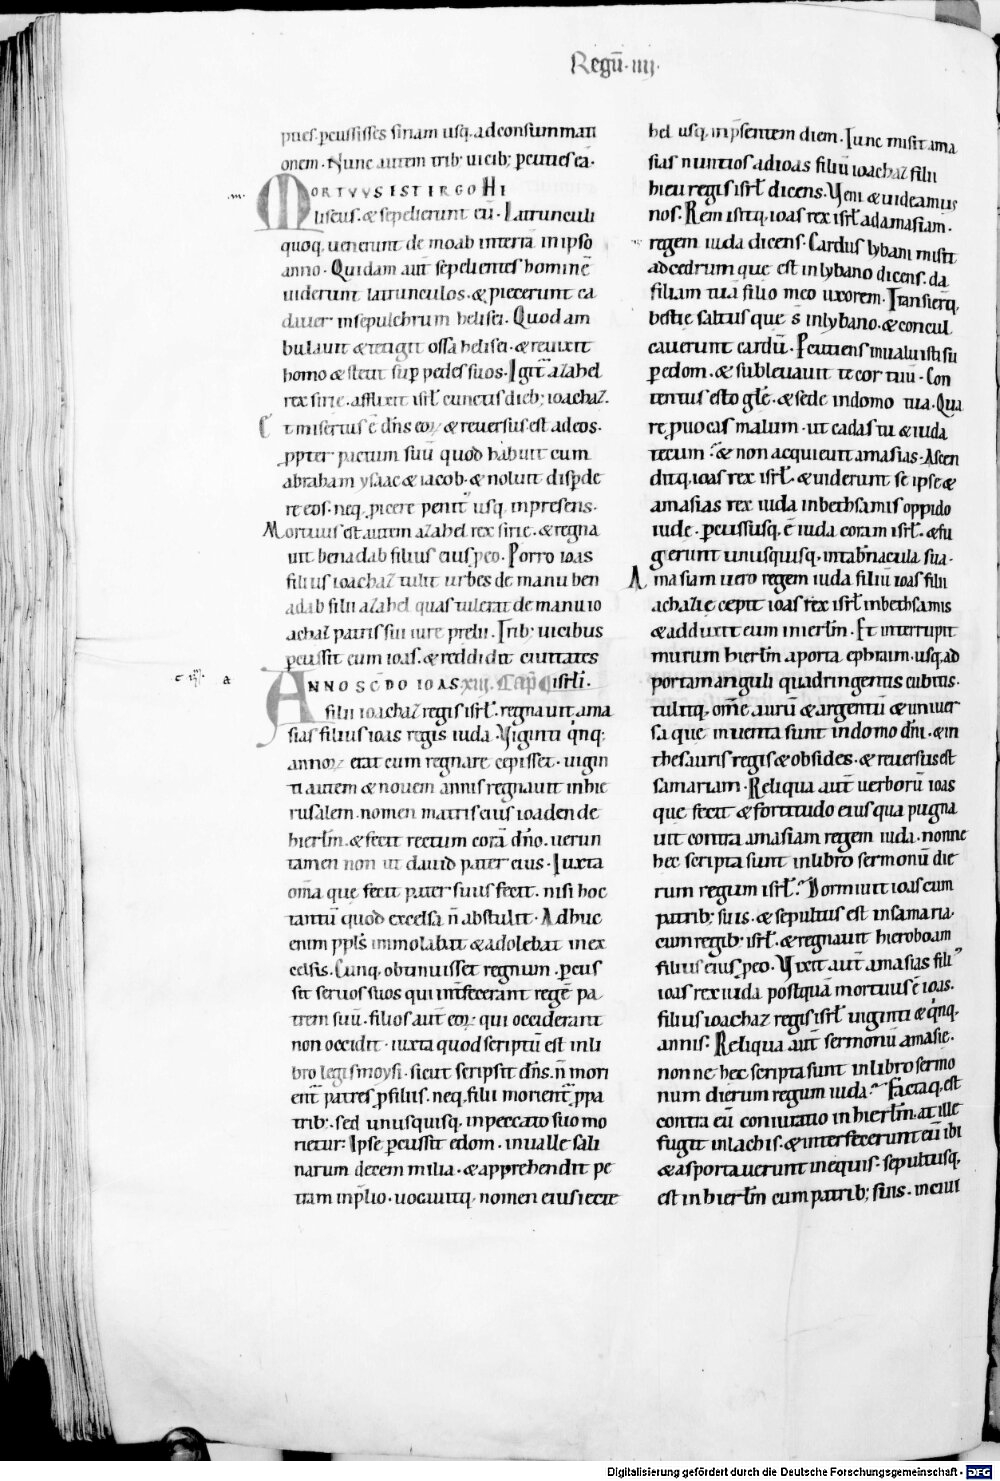 Regū·iiij·
pties pcussisses siriam usq; adconsummati
onem· Nunc autem trib; uicib; pcuties eā·
·III·
MORTVVS IST IRGO HI
liseus· & sepelierunt eū· Latrunculi
quoq; uenerunt de moab interrā inipso
anno· Quidam aut̄ sepelientes hominē
uiderunt latrunculos· & piecerunt ca
dauer insepulchrum helisei· Quod am
bulauit & tetigit ossa helisei· & reuixit
homo & stetit sup pedes suos· Igit̄ azahel
rex sirie· afflixit isrł cunctis dieb; ioachaz·
Et misertus ē dn̄s eoꝝ & reuersus est adeos·
ppter pactum suū quod habuit cum
abraham ysaac & iacob· & noluit dispde
re eos· neq; picere penit; usq; inpresens·
Mortuus est autem azahel rex sirie· & regna
uit benadab filius eius peo· Porro ioas
filius ioachaz tulit urbes de manu ben
adab filii azahel quas tulerat de manu io
achaz patris sui iure prelii· Trib; uicibus
pcussit eum ioas· & reddidit ciuitates
a
ANNO SC̄DO IOAS xiii. Cap isrłi·
filii ioachaz regis isrł· regnauit ama
sias filius ioas regis iuda· Viginti qͥnq;
annoꝝ erat cum regnare cepisset· uigin
ti autem & nouem annis regnauit inhie
rusalem· nomen matris eius ioaden de
hierłm· & fecit rectum corā dn̄o· uerun
tamen non ut dauid pater eius· Iuxta
om̄a que fecit pater suus fecit· nisi hoc
tantū quod excelsa n̄ abstulit· Adhuc
enim ppłs immolabat & adolebat inex
celsis· Cunq; obtinuisset regnum· pcus
sit seruos suos qui int̄fecerant regē pa
trem suū· filios aut̄ eoꝝ qui occiderant
non occidit· iuxta quod scriptū est inli
bro legis moysi· sicut scripsit dn̄s· n̄ mori
ent̄ patres p filiis· neq; filii morient̄ ppa
trib;· sed unusquisq; inpeccato suo mo
rietur· Ipse pcussit edom· inualle sali
narum decem milia· & apprehendit pe
tram inplio· uocauitq; nomen eius iecte
hel usq; inpsentem diem· Tunc misit ama
sias nuntios adioas filiū ioachaz filii
hieu regis isrł dicens· Veni & uideamus
nos· Remisitq; ioas rex isrł adamasiam·
regem iuda dicens· Cardus lybani misit
adcedrum que est inlybano dicens· da
filiam tuā filio meo uxorem· Transierq;
bestie saltus que s̄ inlybano· & concul
cauerunt cardū· Pcutiens inualuisti su
p edom· & subleuauit te cor tuū· Con
tentus esto glē· & sede indomo tua· Qua
re puocas malum· ut cadas tu & iuda
tecum· & non acquieuit amasias· Ascen
ditq; ioas rex isrł· & uiderunt se ipse &
amasias rex iuda inbethsamis oppido
iude· pcussusq; ē iuda coram isrł· & fu
gerunt unusquisq; intab̄nacula sua·
Amasiam uero regem iuda filiū ioas filii
achazie cepit ioas rex isrł inbethsamis
& adduxit eum inierłm· Et interrupit
murum hierłm aporta ephraim· usq; ad
portam anguli quadringentis cubitis·
tulitq; om̄e aurū & argentū & uniuer
sa que inuenta sunt indomo dn̄i· & in
thesauris regis & obsides· & reuersus est
samariam· Reliqua aut̄ uerborū ioas
que fecit & fortitudo eius qua pugna
uit contra amasiam regem iuda· nonne
hec scripta sunt inlibro sermonū die
rum regum isrł? Dormiuit ioas cum
patrib; suis· & sepultus est insamaria·
cum regib; isrł· & regnauit hieroboam
filius eius peo· Vixit aut̄ amasias fili
ioas rex iuda postquā mortuus ē ioas·
filius ioachaz regis isrł uiginti & qͥnq;
annis· Reliqua aut̄ sermonū amasie·
nonne hec scripta sunt inlibro sermo
num dierum regum iuda? Factaq; est
contra eū coniuratio inhierłm· at ille
fugit inlachis· & interfecerunt eū ibi
& asportauerunt inequis· sepultusq;
est inhierłm cum patrib; suis· inciui
Digitalisierung gefördert durch die Deutsche Forschungsgemeinschaft - DFG